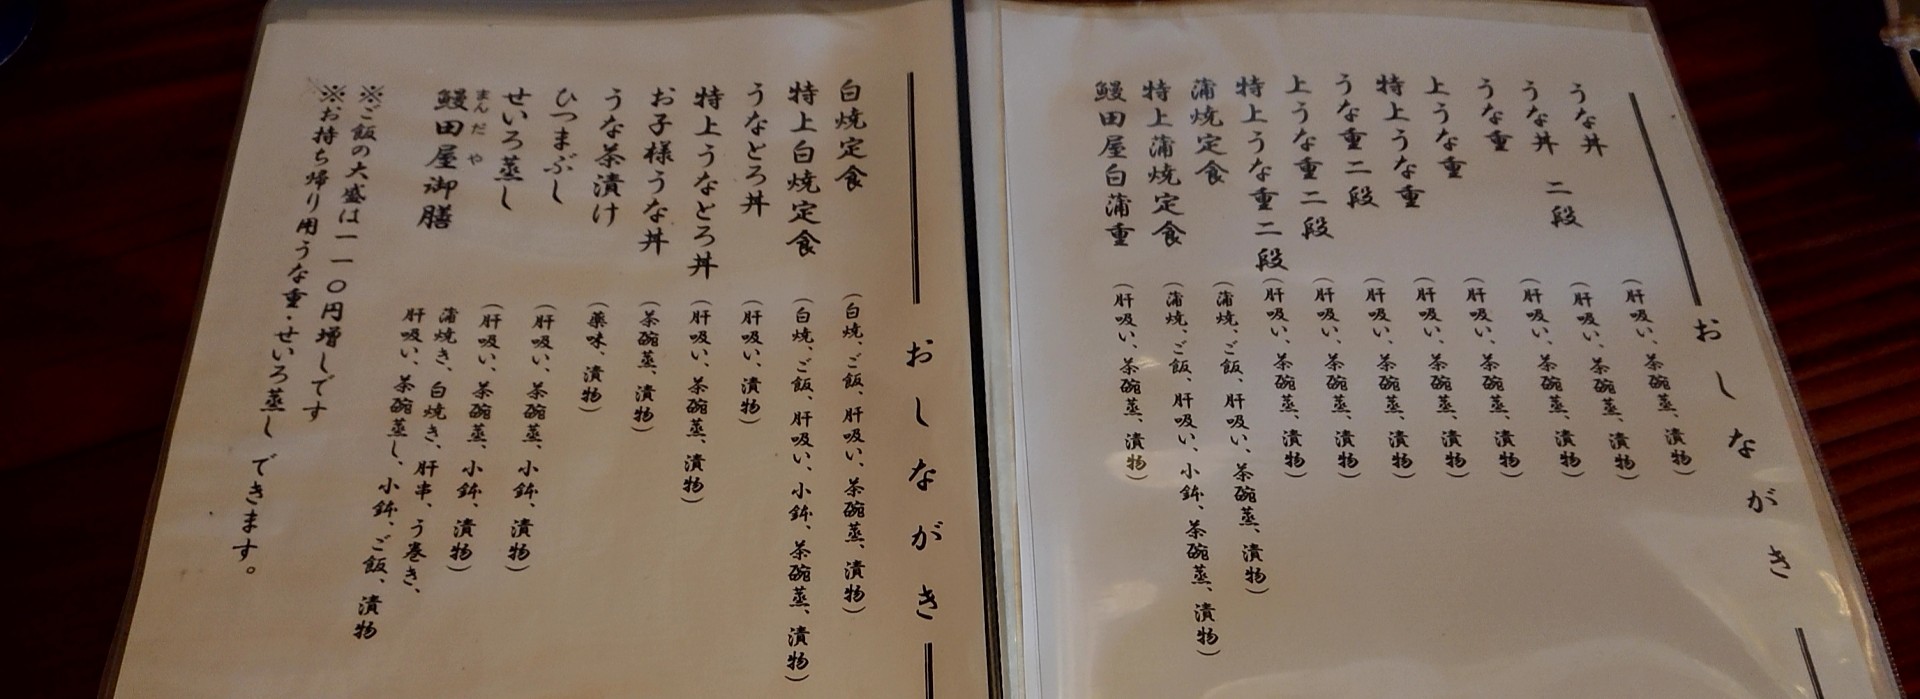 おしながき
うな丼 （肝吸い、茶碗蒸、漬物）
うな丼 二段 （肝吸い、茶碗蒸、漬物）
うな重 （肝吸い、茶碗蒸、漬物）
上うな重 （肝吸い、茶碗蒸、漬物）
特上うな重 （肝吸い、茶碗蒸、漬物）
うな重二段 （肝吸い、茶碗蒸、漬物）
上うな重二段 （肝吸い、茶碗蒸、漬物）
特上うな重二段 （肝吸い、茶碗蒸、漬物）
蒲焼定食 （蒲焼、ご飯、肝吸い、茶碗蒸、漬物）
特上蒲焼定食 （蒲焼、ご飯、肝吸い、小鉢、茶碗蒸、漬物）
鰻田屋白蒲重 （肝吸い、茶碗蒸、漬物）
おしながき
白焼定食 （白焼、ご飯、肝吸い、茶碗蒸、漬物）
特上白焼定食 （白焼、ご飯、肝吸い、小鉢、茶碗蒸、漬物）
うなとろ丼 （肝吸い、漬物）
特上うなとろ丼 （肝吸い、茶碗蒸、漬物）
お子様うな丼 （茶碗蒸、漬物）
うな茶漬け （薬味、漬物）
ひつまぶし （肝吸い、茶碗蒸、小鉢、漬物）
せいろ蒸し （肝吸い、茶碗蒸、小鉢、漬物）
まんだや
鰻田屋御膳 蒲焼き、白焼き、肝串、う巻き、
肝吸い、茶碗蒸し、小鉢、ご飯、漬物
※ご飯の大盛は一一〇円増しです
※お持ち帰り用うな重・せいろ蒸し できます。